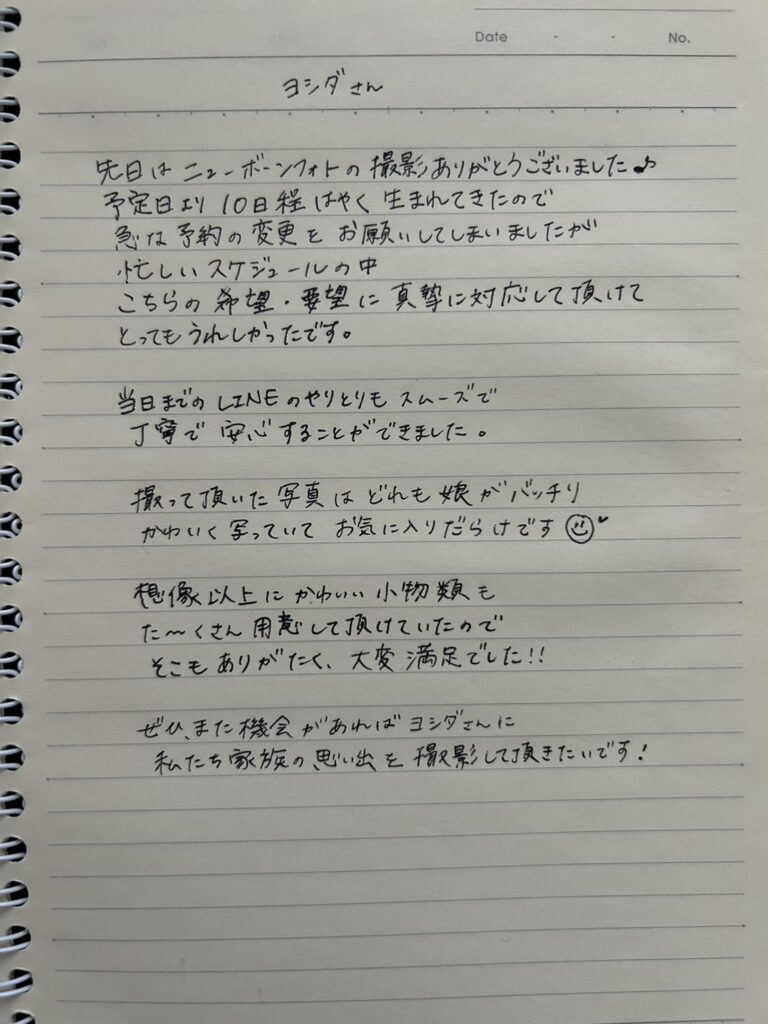 Date ・ ・ No.
ヨシダさん
先日は ニューボーンフォトの 撮影ありがとうございました♪
予定日より 10日程はやく 生まれてきたので
急な予約の変更を お願いしてしまいましたが
忙しいスケジュールの中
こちらの 希望・要望に 真摯に対応して頂けて
とってもうれしかったです。
当日までの LINEのやりとりも スムーズで
丁寧で 安心することができました。
撮って頂いた 写真は どれも 娘が バッチリ
かわいく 写っていて お気に入りだらけです☺♥
想像以上に かわいい 小物類も
た〜くさん 用意して頂けていたので
そこも ありがたく、大変 満足でした!!
ぜひ、また 機会があれば ヨシダさんに
私たち家族の思い出を 撮影して頂きたいです!